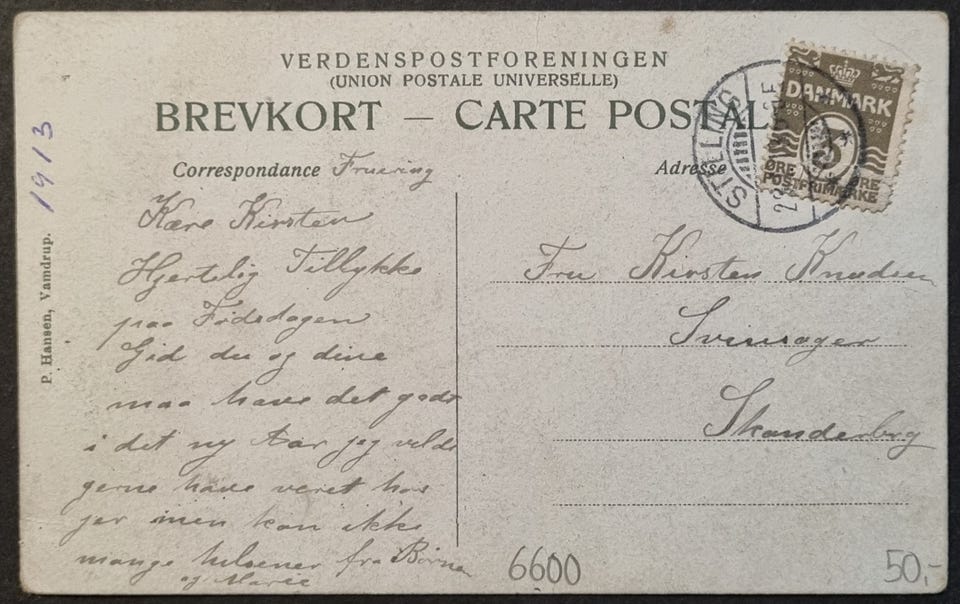 VERDENSPOSTFORENINGEN
(UNION POSTALE UNIVERSELLE)
BREVKORT — CARTE POSTAL
Correspondance Fruering
Adresse
1913
P. Hansen, Vamdrup.
Kære Kirsten
Hjertelig Tillykke
paa Fødsdagen
Gid du og dine
maa have det godt
i det ny Aar jeg vilde
gerne have veret hos
jer men kan ikke
mange hilsener fra Børnene
og Marie
STILLING
DANMARK
ØRE ØRE
POSTFRIMÆRKE
Fru Kirsten Knudsen
Svinsager
Skanderborg
6600
50,-